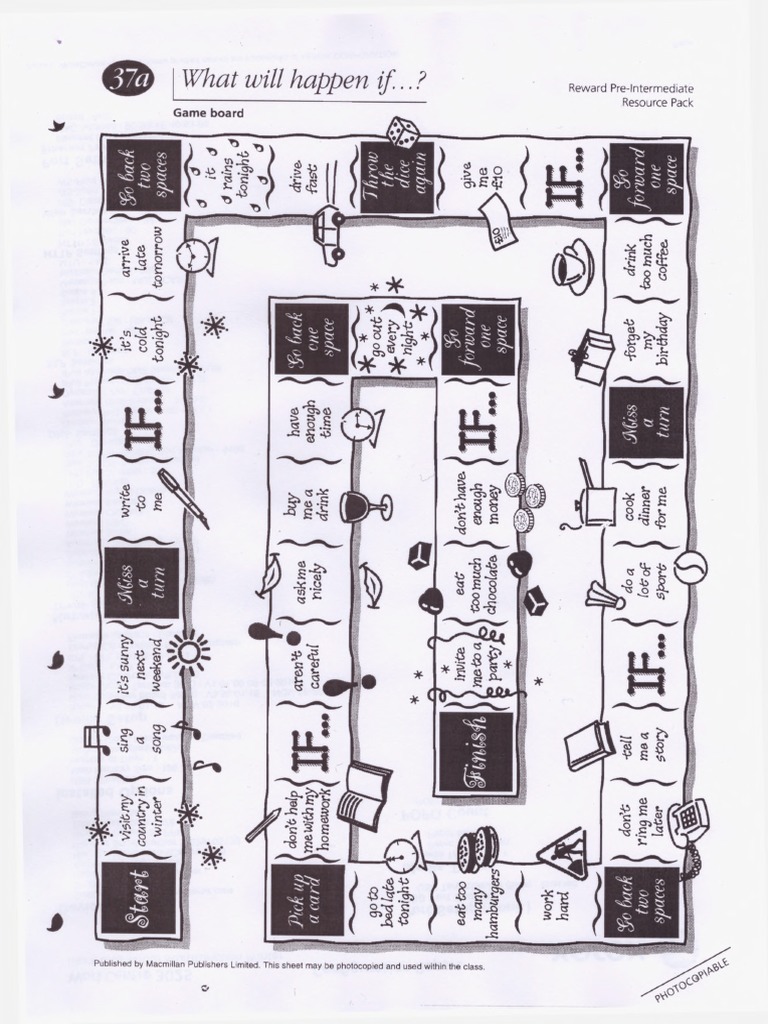 37a
What will happen if...?
Game board
Reward Pre-Intermediate
Resource Pack
Start
Visit my
country in
winter
sing
a
song
it's sunny
next
weekend
Miss
a
turn
write
to
me
IF...
it's
cold
tonight
arrive
late
tomorrow
Go back
two
spaces
it
rains
tonight
drive
fast
Throw
the
dice
again
give
me
£10
IF...
Go
forward
one
space
drink
too much
coffee
forget
my
birthday
Miss
a
turn
cook
dinner
for me
do a
lot of
sport
IF...
tell
me a
story
don't
ring me
later
Go back
two
spaces
work
hard
eat too
many
hamburgers
go to
bed late
tonight
Pick up
a card
don't help
me with my
homework
IF...
aren't
careful
ask me
nicely
buy
me a
drink
have
enough
time
Go back
one
space
go out
every
night
Go
forward
one
space
IF...
don't have
enough
money
eat
too much
chocolate
invite
me to a
party
Finish
Published by Macmillan Publishers Limited. This sheet may be photocopied and used within the class.
PHOTOCOPIABLE